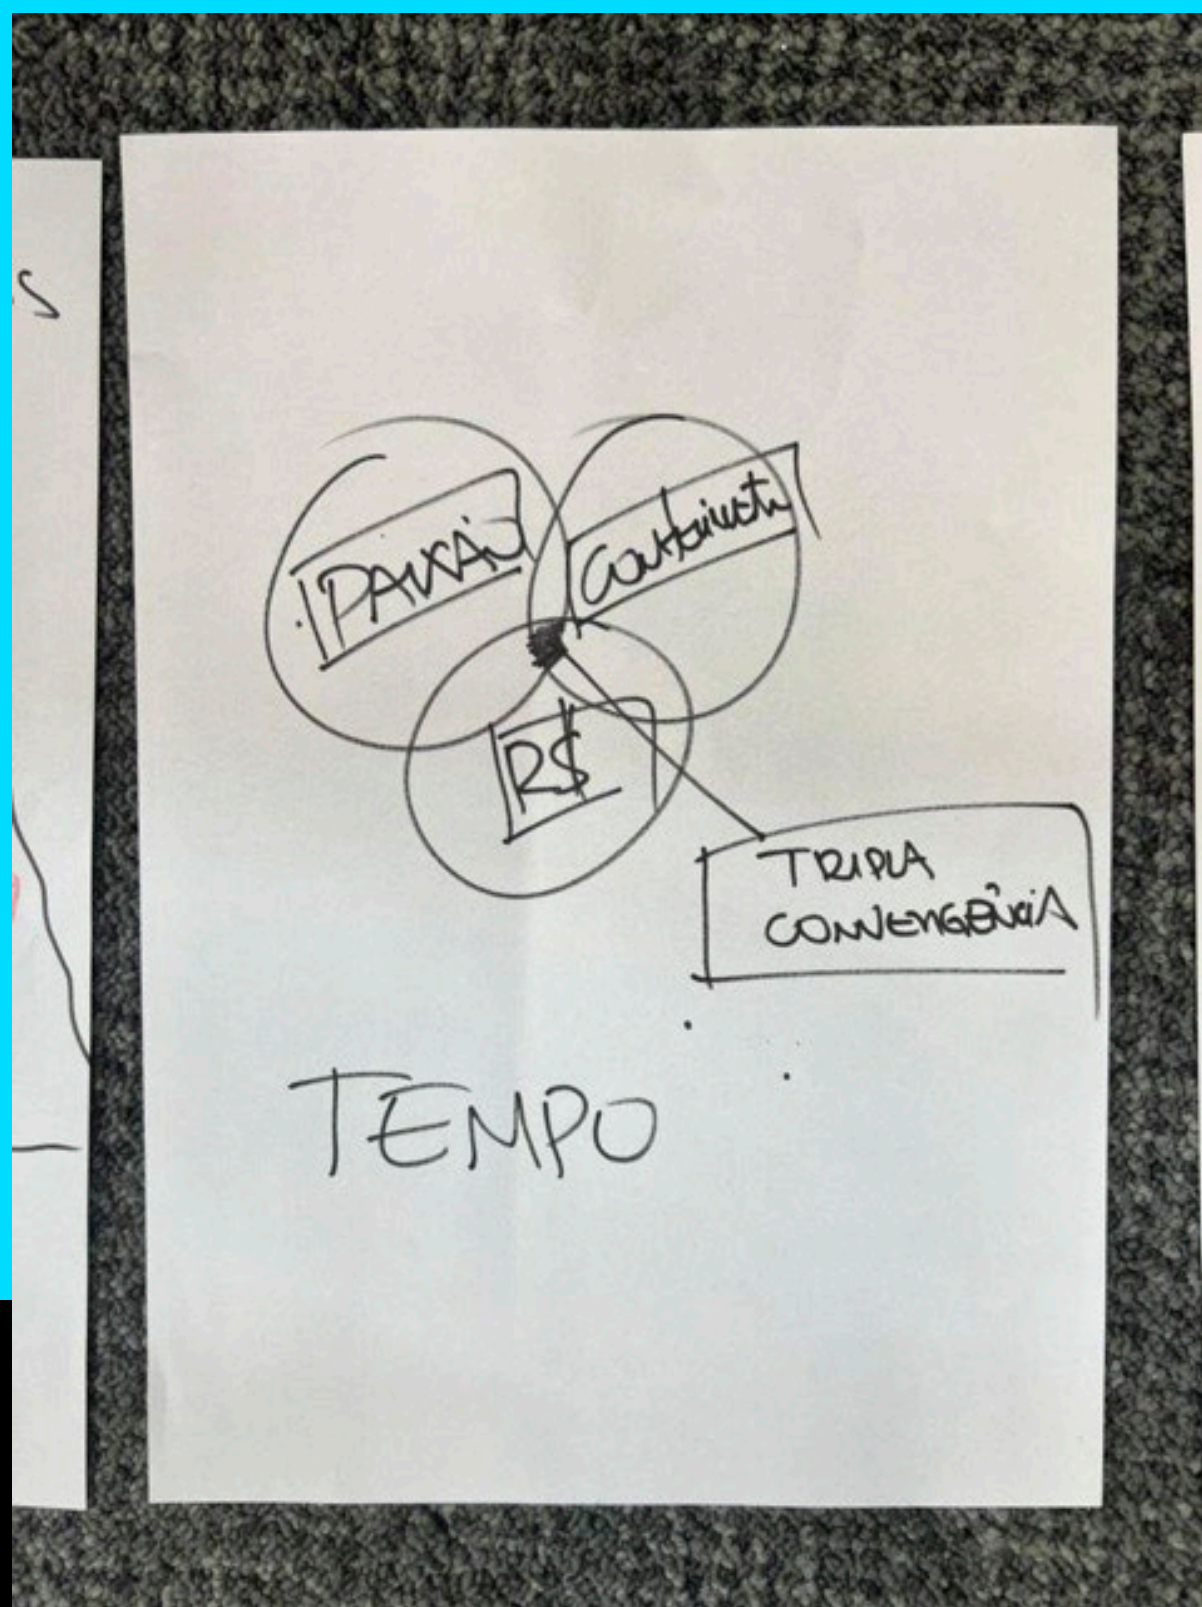 PAIXÃO
Conhecimento
R$
TRIPLA
CONVERGÊNCIA
TEMPO